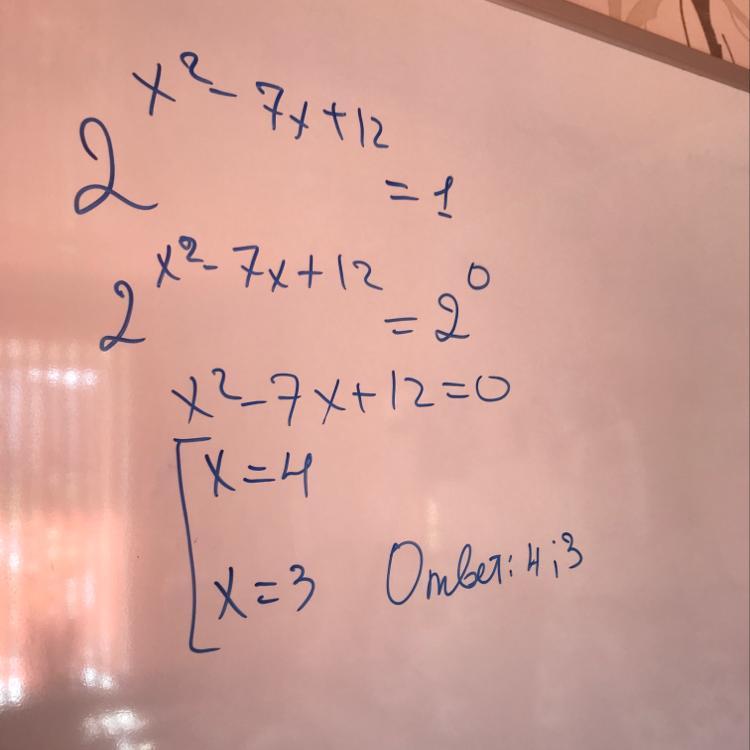 2^{x²-7x+12} = 1
2^{x²-7x+12} = 2⁰
x²-7x+12=0
[x=4
x=3 Ответ: 4;3